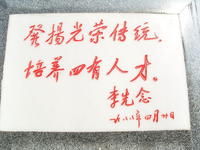 發揚光荣传统，
培养四有人才。
李先念
一九八八年四月廿日